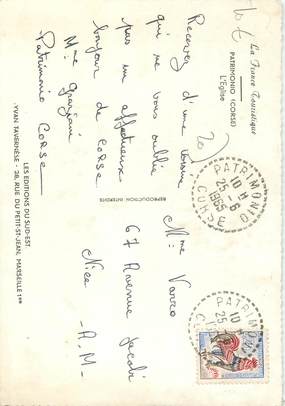 La France Touristique
PATRIMONIO (CORSE)
L'Eglise
Recevez d'une
qui ne vous oublie
pas un affectueux
bonjour de Corse
Mme
Patrimonio CORSE
REPRODUCTION INTERDITE
LES EDITIONS DU SUD-EST
YVAN TAVERNÈSE - 28, RUE DU PETIT-ST-JEAN, MARSEILLE 1er
Mme Varro
67 Avenue Jacobi
Nice
A.M
PATRIMONIO
10 H
25-6
1965
CORSE
PATRIMONIO
10 H
25
1965
CORSE